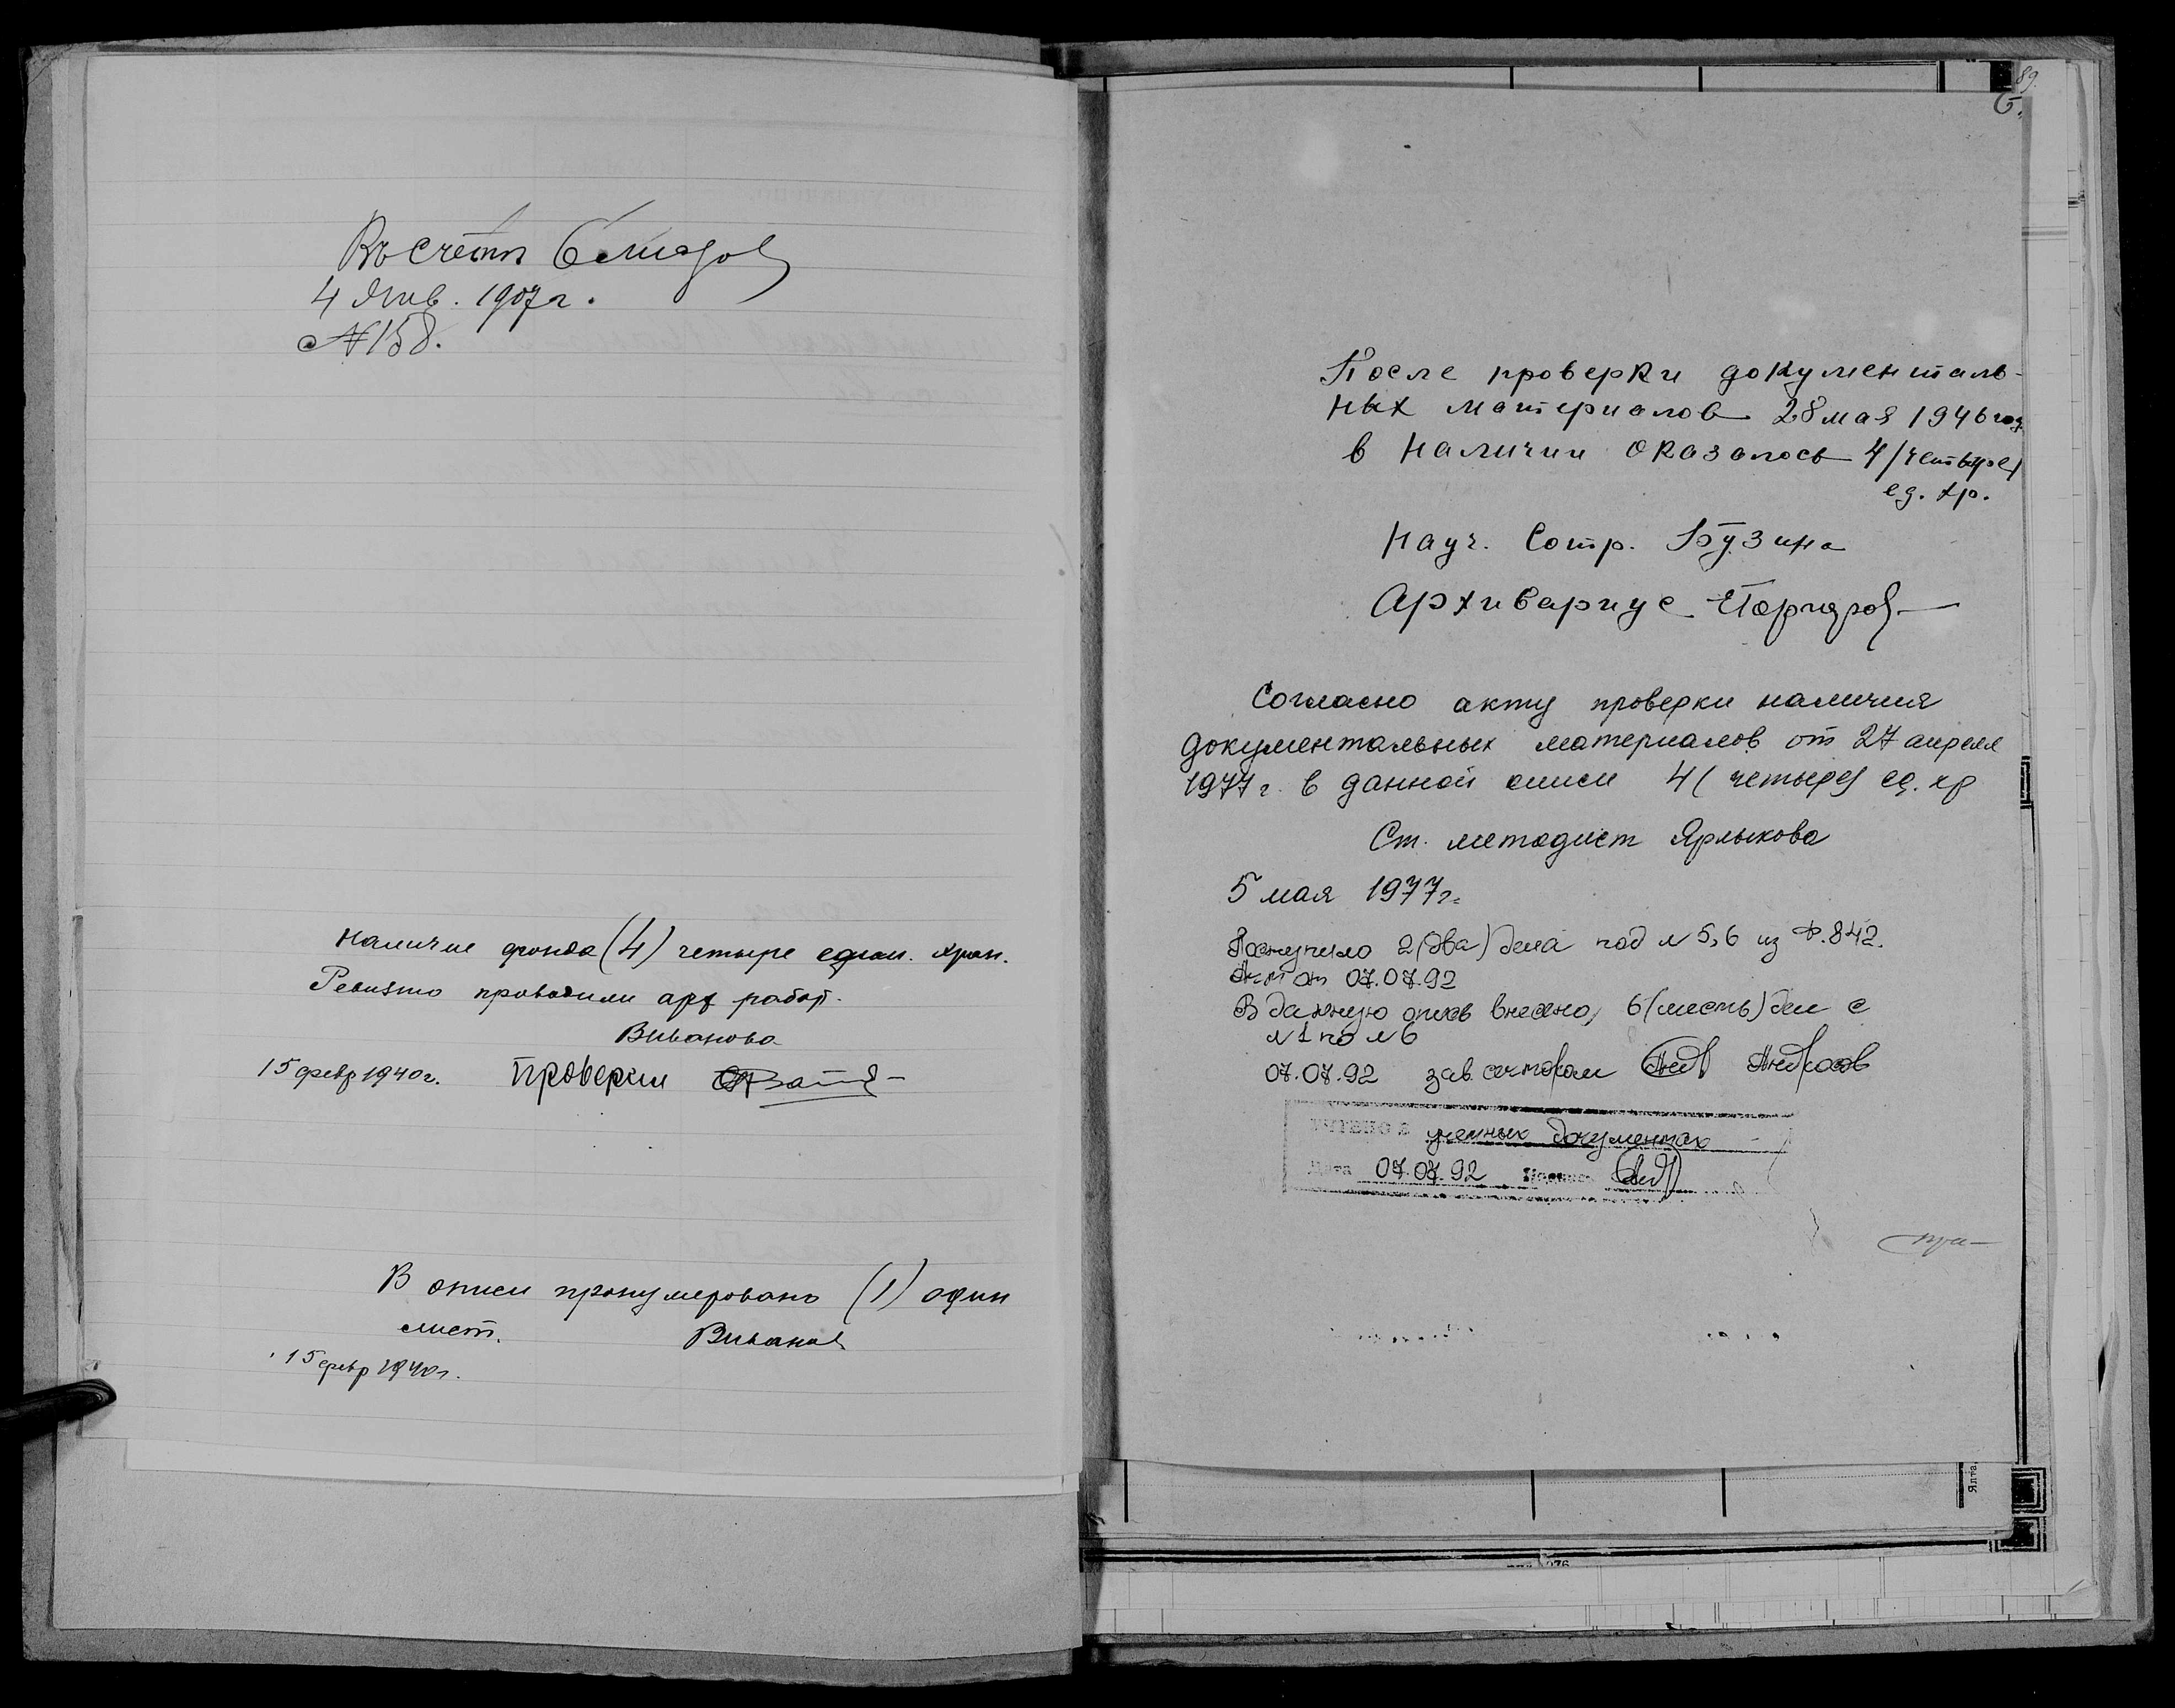 4 Янв. 1907 г.
№ 158.
Наличие фонда (4) четыре един. хран.
Ревизию проводили арх работ.
Виванова
15 февр 1940 г. Проверки
В описи пронумеровано (1) один
лист. Виванов
15 февр 1940 г.
89.
После проверки документаль-
ных материалов 28 мая 1946 год
в наличии оказалось 4 /четыре/
ед. хр.
Науч. Сотр. Бузина
Архивариус
Согласно акту проверки наличия
документальных материалов от 27 апреля
1977 г. в данной описи 4 (четыре) ед. хр
Ст. методист Ярлыкова
5 мая 1977 г.
Поступило 2 (два) дела под № 5, 6 из Ф. 842.
Акт от 07.07.92
В данную опись внесено 6 (шесть) дел с
№ 1 по № 6
07.07.92 зав. сектором Андросов
УЧТЕНО в учетных документах
Дата 07.07.92 Подпись
Ялта